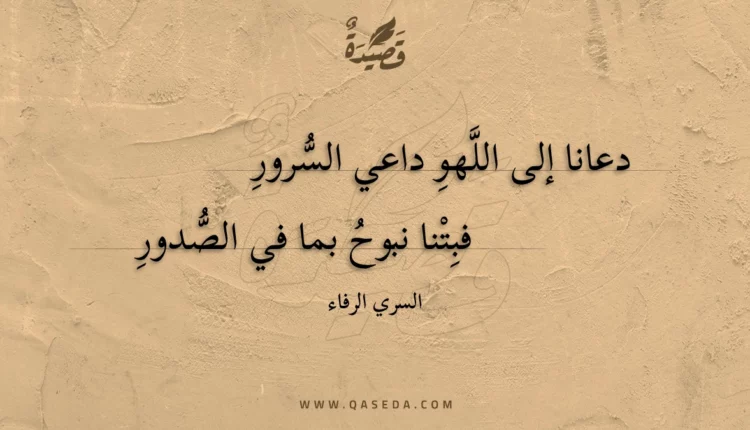 قَصِيْدَةٌ
دعانا إلى اللَّهوِ داعي السُّرورِ
فبِتْنا نبوحُ بما في الصُّدورِ
السري الرفاء
WWW.QASEDA.COM